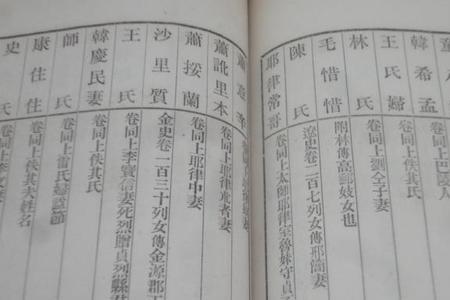 韓希孟 卷同上巴陵人
王氏婦 卷同上劉仝子妻
林氏 卷同上佚其氏
毛惜惜 附林傳高郵妓女也
陳氏 遼史卷一百七列女傳邢簡妻
耶律常哥 卷同上太師耶律室魯妹守貞
蕭意辛
蕭訛里本 卷同上耶律朮者妻
蕭挼蘭 卷同上耶律中妻
沙里質 金史卷一百三十列女傳金源郡王
王氏 卷同上李寶信妻死烈贈貞烈縣君
韓慶民妻 卷同上佚其氏
師氏 卷同上
康住住 卷同上佚其夫姓名
史氏